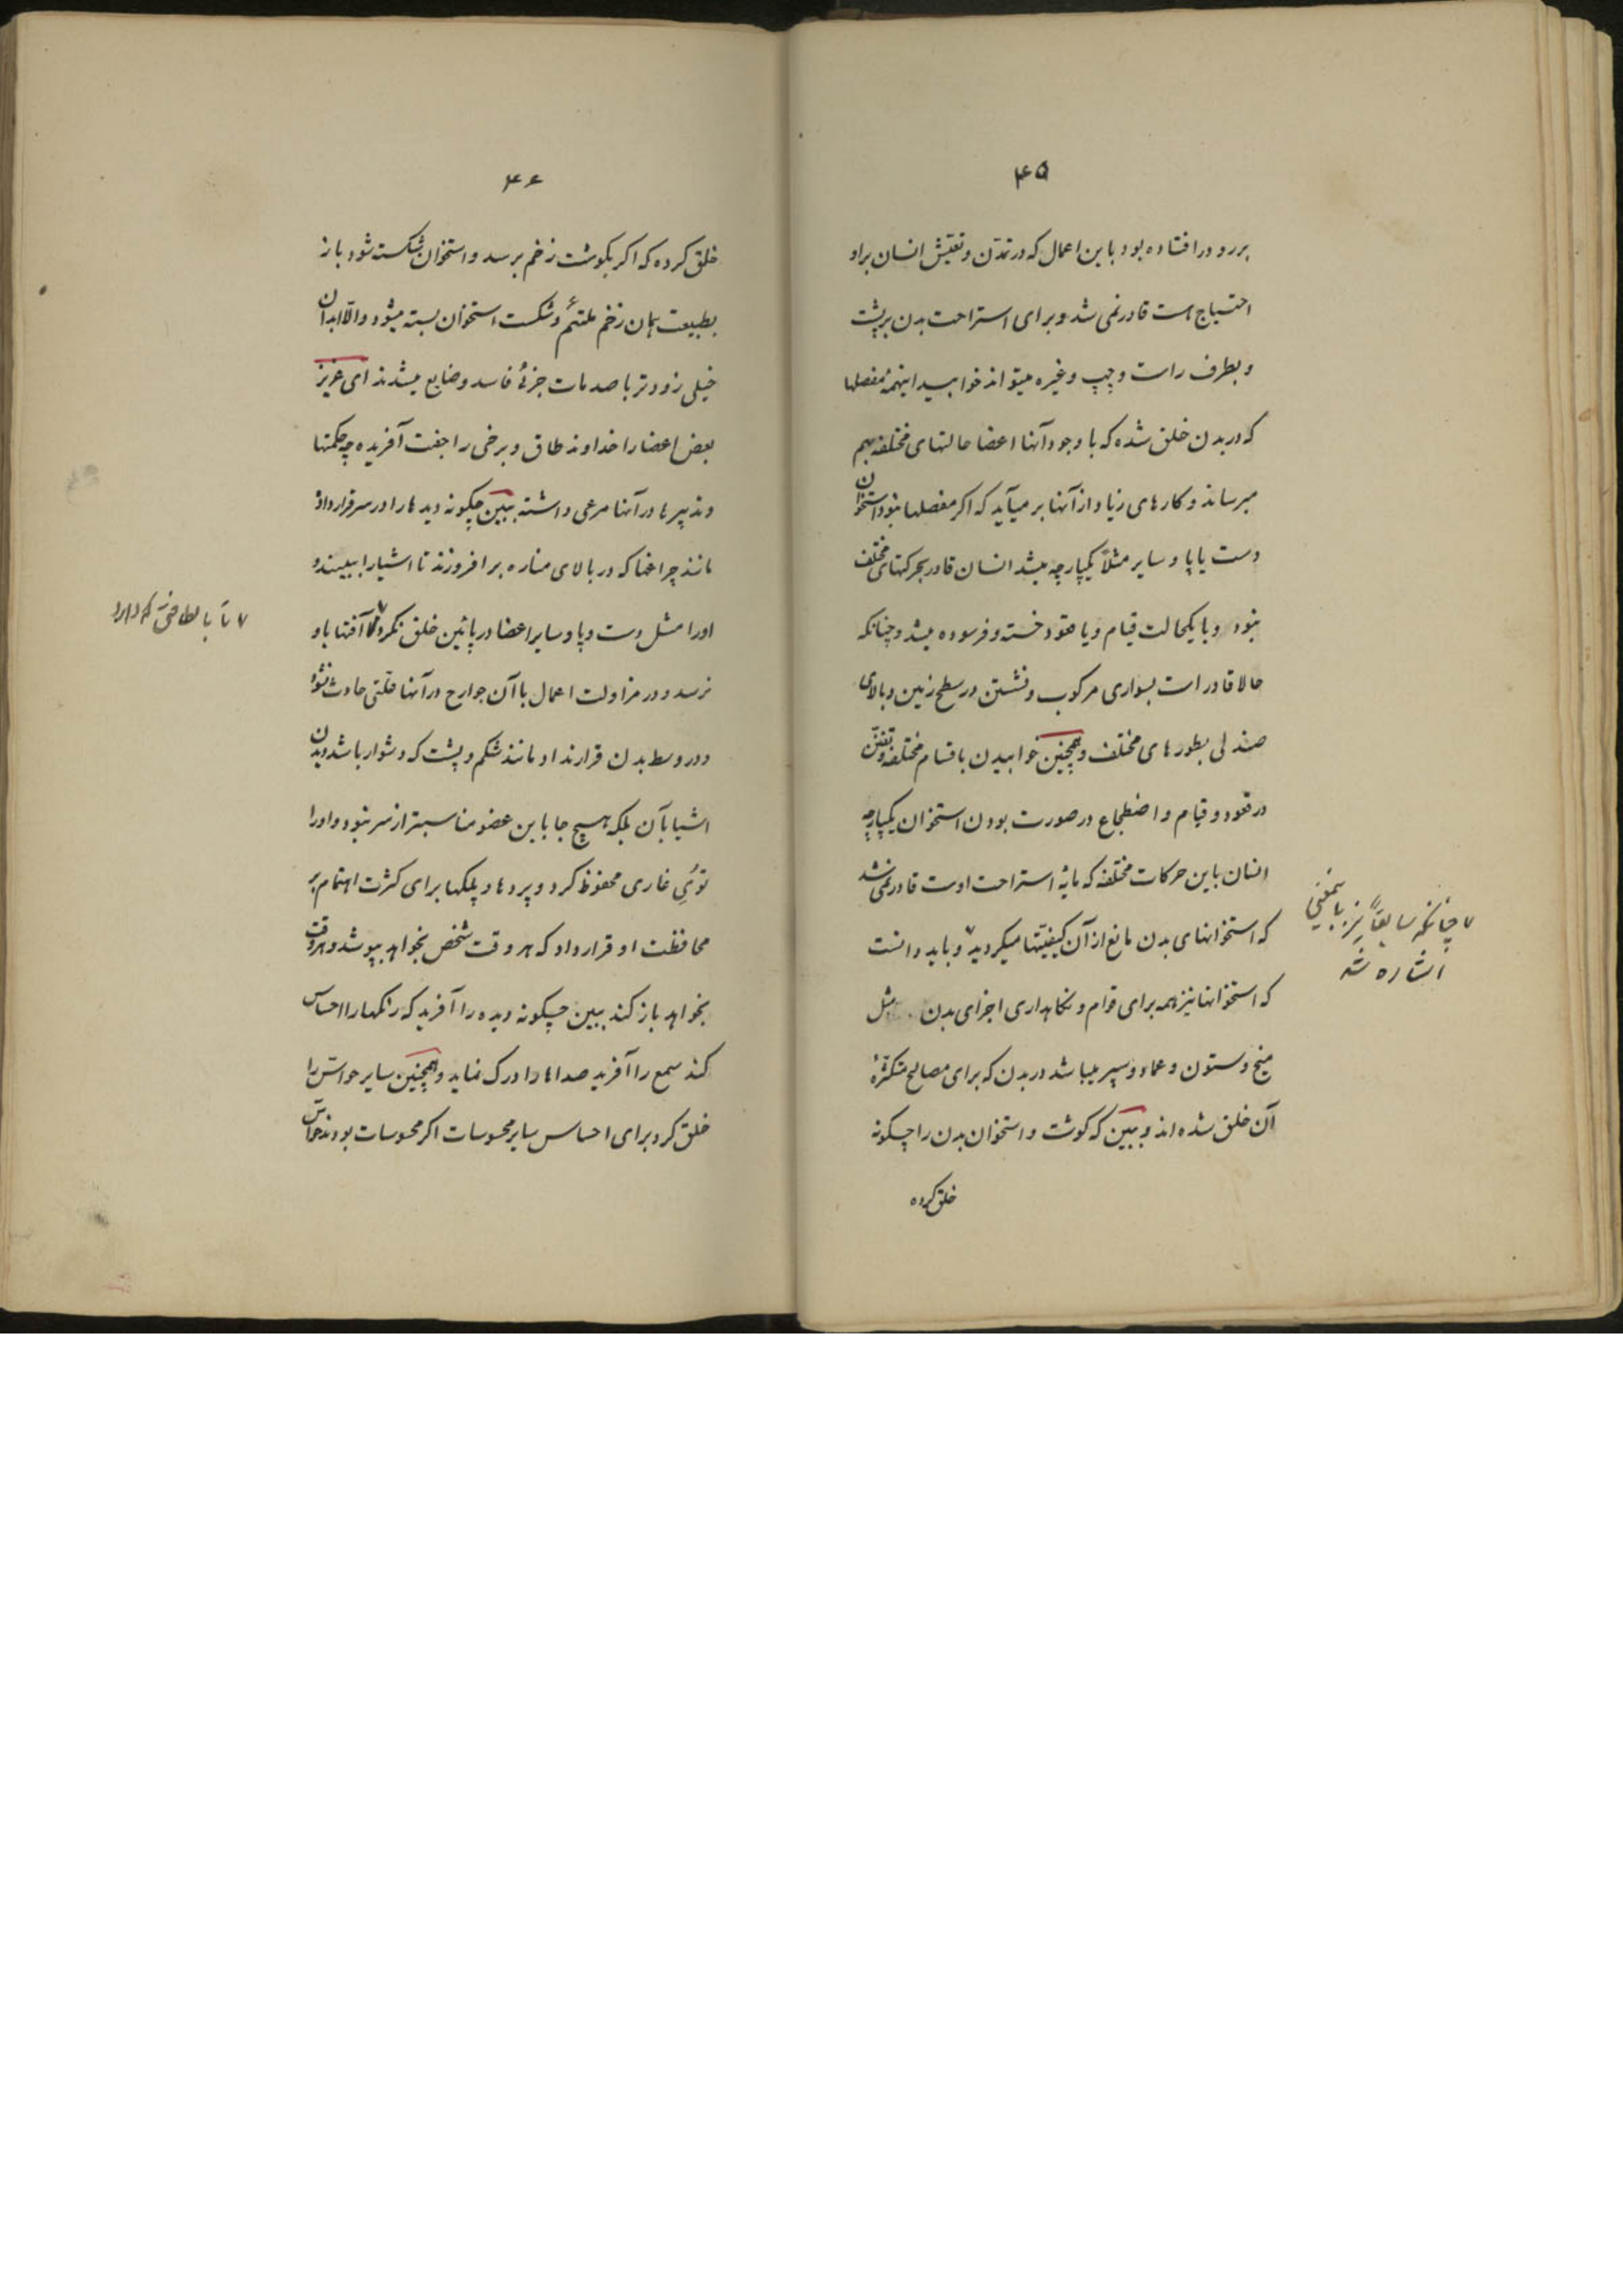 ۴۵
بررو در افتاده بود باین اعمال که در تمدّن و تعیّش انسان براو
احتیاج است قادر نمی شد و برای استراحت بدن بر پشت
و بطرف راست و چپ و غیره میتواند خوابید اینهمه مفصلها
که در بدن خلق شده که با وجود آنها اعضا حالتهای مختلفه بهم
میرساند و کارهای زیاد از آنها بر میآید که اگر مفصلها نبود استخوان
دست یا پا و سایر مثلاً یکپارچه میشد انسان قادر بحرکتهای مختلف
نبود و با یکحالت قیام و یا قعود خسته و فرسوده میشد و چنانکه
حالا قادر است بسواری مرکوب و نشستن در سطح زمین و بالای
صندلی بطورهای مختلف و همچنین خوابیدن باقسام مختلفه و تفنّن
در قعود و قیام و اضطجاع در صورت بودن استخوان یکپارچه
انسان باین حرکات مختلفه که مایهٔ استراحت اوست قادر نمی شد
که استخوانهای بدن مانع از آن کیفیّتها میگردید ۷ و باید دانست
۷ چنانکه سابقاً نیز باینمعنی
اشاره شد
که استخوانها نیز همه برای قوام و نگاهداری اجزای بدن مثل
میخ و ستون و عماد و سپر میباشد در بدن که برای مصالح متکثرهٔ
آن خلق شده اند و ببین که گوشت و استخوان بدن را چگونه
خلق کرده
۴۶
خلق کرده که اگر بگوشت زخم برسد و استخوان شکسته شود باز
بطبیعت همان زخم ملتئم و شکست استخوان بسته میشود و الّا ابدان
خیلی زودتر با صدمات جزئی فاسد و ضایع میشدند ای عزیز
بعض اعضا را خداوند طاق و برخی را جفت آفریده چه حکمتها
و تدبیرها در آنها مرعی داشته ببین چگونه دیدها را در سر قرار داد
مانند چراغها که در بالای مناره بر افروزند تا اشیا را ببیند و
او را مثل دست و پا و سایر اعضا در پائین خلق نکرد ۷ تا آفتها باو
۷ تا با لطافتی که دارد
نرسد و در مزاولت اعمال با آن جوارح در آنها علّتی حادث نشود
و در وسط بدن قرار نداد مانند شکم و پشت که دشوار باشد دیدن
اشیا بآن بلکه هیچ جا باین عضو مناسبتر از سر نبود و او را
توی غاری محفوظ کرد و پردها و پلکها برای کثرت اهتمام بر
محافظت او قرار داد که هر وقت شخص بخواهد بپوشد و هر وقت
بخواهد باز کند ببین چگونه دیده را آفرید که رنگها را احساس
کند سمع را آفرید صداها را درک نماید و همچنین سایر حواسّ را
خلق کرد برای احساس سایر محسوسات اگر محسوسات بودند حواسّ